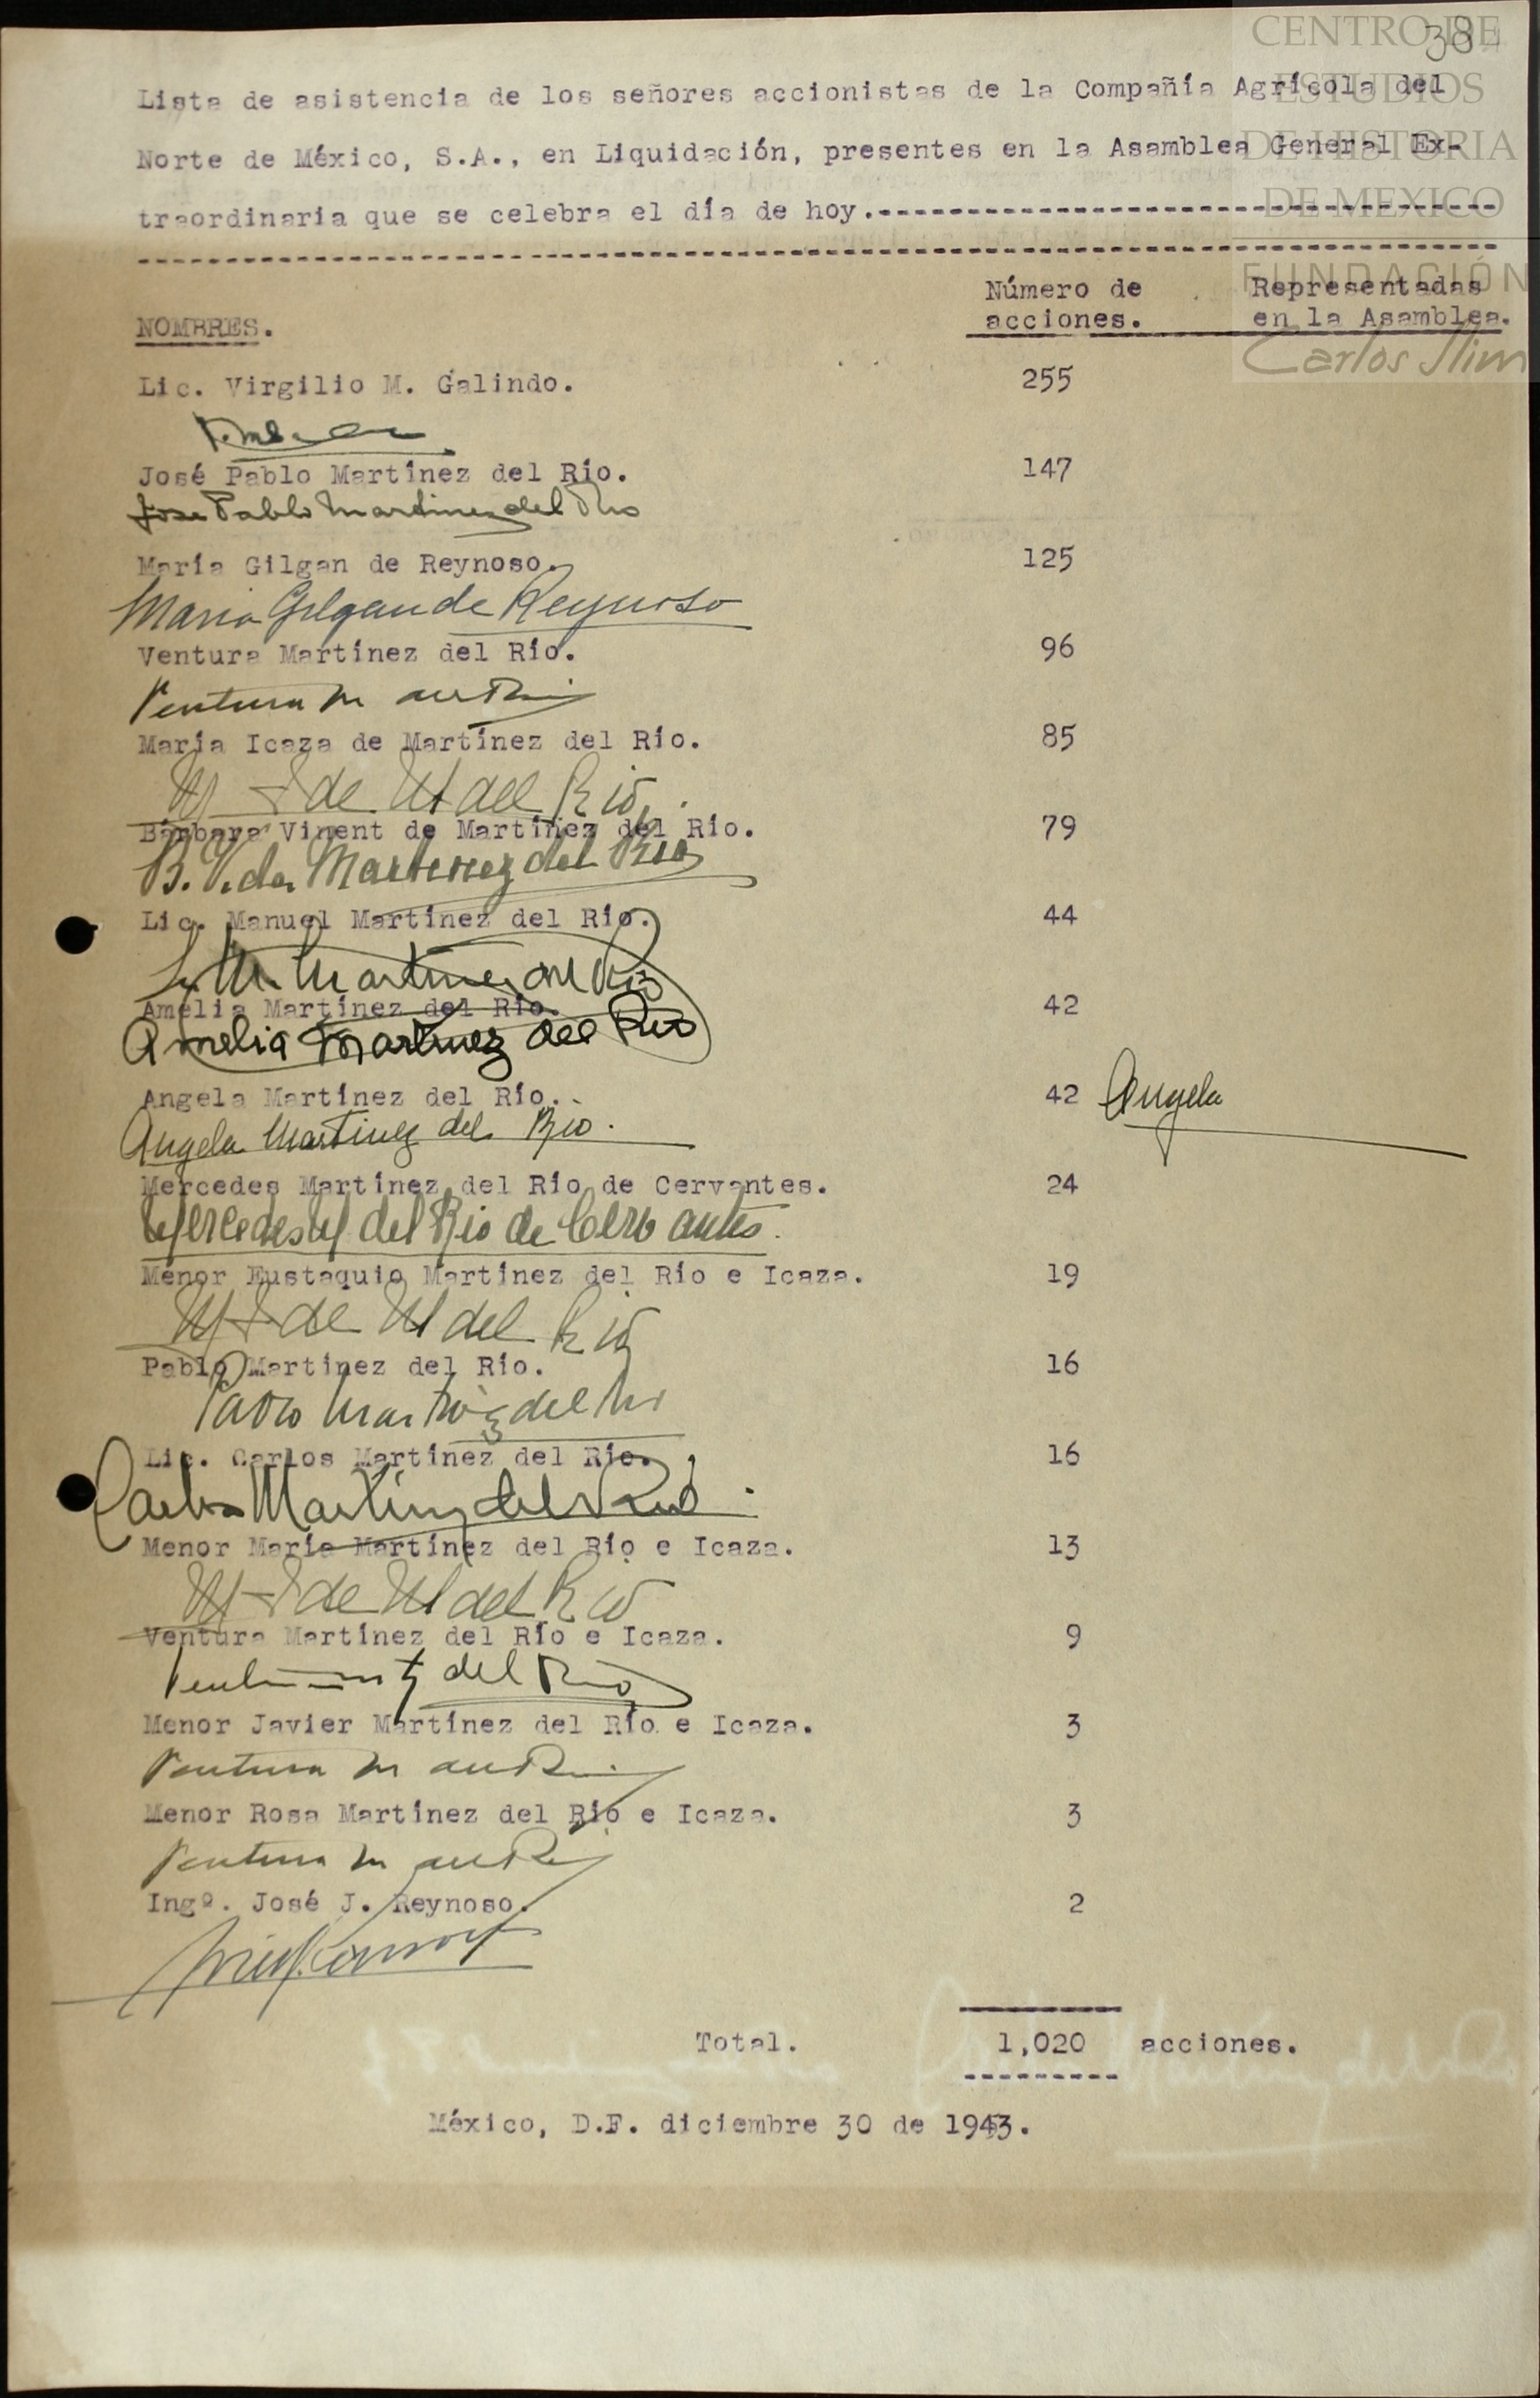 CENTRO DE
38
ESTUDIOS
DE HISTORIA
DE MEXICO
FUNDACIÓN
Carlos Slim
Lista de asistencia de los señores accionistas de la Compañía Agrícola del
Norte de México, S.A., en Liquidación, presentes en la Asamblea General Ex-
traordinaria que se celebra el día de hoy.-----------------------------------
Número de Representadas
NOMBRES. acciones. en la Asamblea.
Lic. Virgilio M. Galindo. 255
José Pablo Martínez del Río. 147
Jose Pablo Martinez del Rio
María Gilgan de Reynoso. 125
Maria Gilgan de Reynoso
Ventura Martínez del Río. 96
Ventura M del Rio
María Icaza de Martínez del Río. 85
M I de M del Rio
Bárbara Vinent de Martínez del Río. 79
B. V. de Martinez del Rio
Lic. Manuel Martínez del Río. 44
Lic M. Martinez del Rio
Amelia Martínez del Río. 42
Amelia Martinez del Rio
Angela Martínez del Río. 42 Angela
Angela Martinez del Rio.
Mercedes Martínez del Río de Cervantes. 24
Mercedes M del Rio de Cervantes.
Menor Eustaquio Martínez del Río e Icaza. 19
M I de M del Rio
Pablo Martínez del Río. 16
Pablo Martinez del Rio
Lic. Carlos Martínez del Río. 16
Carlos Martinez del Rio.
Menor María Martínez del Río e Icaza. 13
M I de M del Rio
Ventura Martínez del Río e Icaza. 9
Ventura Mtz del Rio
Menor Javier Martínez del Río e Icaza. 3
Ventura M del Rio
Menor Rosa Martínez del Río e Icaza. 3
Ventura M del Rio
Ingº. José J. Reynoso. 2
Total. 1,020 acciones.
México, D.F. diciembre 30 de 1943.